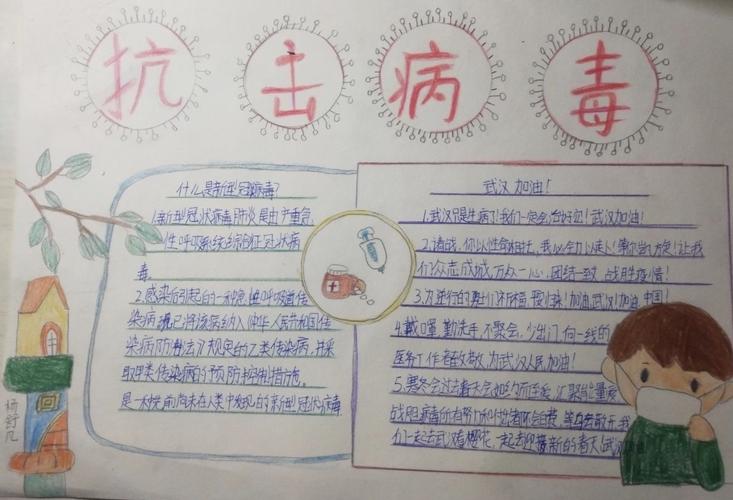 抗击病毒
什么是新型冠状病毒?
1.新型冠状病毒肺炎是由严重急
性呼吸系统综合征冠状病
毒
2.感染后引起的一种急性呼吸道传
染病,现已将该病纳入《中华人民共和国传
染病防治法》规定的乙类传染病,并采
取甲类传染病的预防、控制措施。
是一种以前尚未在人类中发现的新型冠状病毒
武汉加油!
1.武汉只是生病了!我们一定会治好您!武汉加油!
2.请战,你以性命相托,我必全力以赴!等你当归来!让我
们众志成城,万众一心,团结一致,战胜疫情!
3.为逆行的勇士们祈福,要!加油武汉!加油中国!
4.戴口罩,勤洗手,不聚会,少出门,向一线的
医务工作者致敬,为武汉人民加油!
5.寒冬会过去春天会如约而至,汇聚能量
战胜病毒所有努力和付出都不会白费,等
们一起去武汉看樱花,一起去迎接新的春天!武
杨舒凡